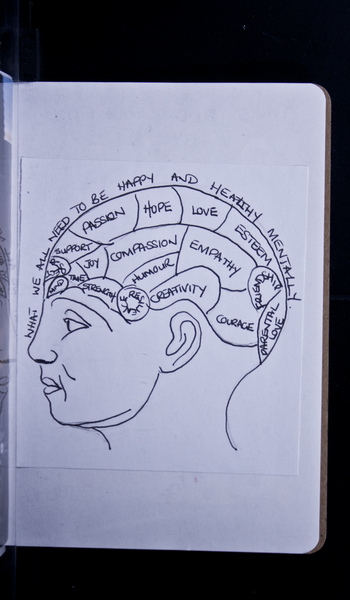 WHAT WE ALL NEED TO BE HAPPY AND HEALTHY MENTALLY
PASSION
HOPE
LOVE
ESTEEM
SUPPORT
JOY
COMPASSION
EMPATHY
HUMOUR
STRENGTH
CREATIVITY
COURAGE
PARENTAL
LOVE